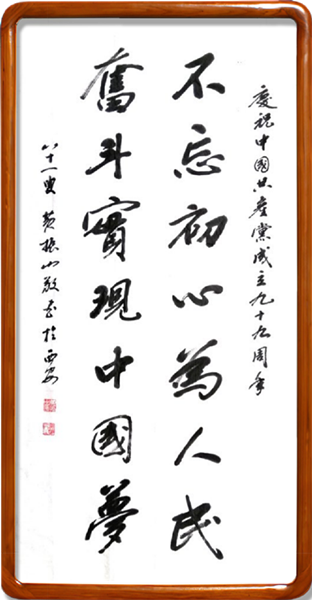 慶祝中國共產黨成立九十九周年
不忘初心為人民
奮斗實現中國夢
八十一叟黃振山敬書於西安